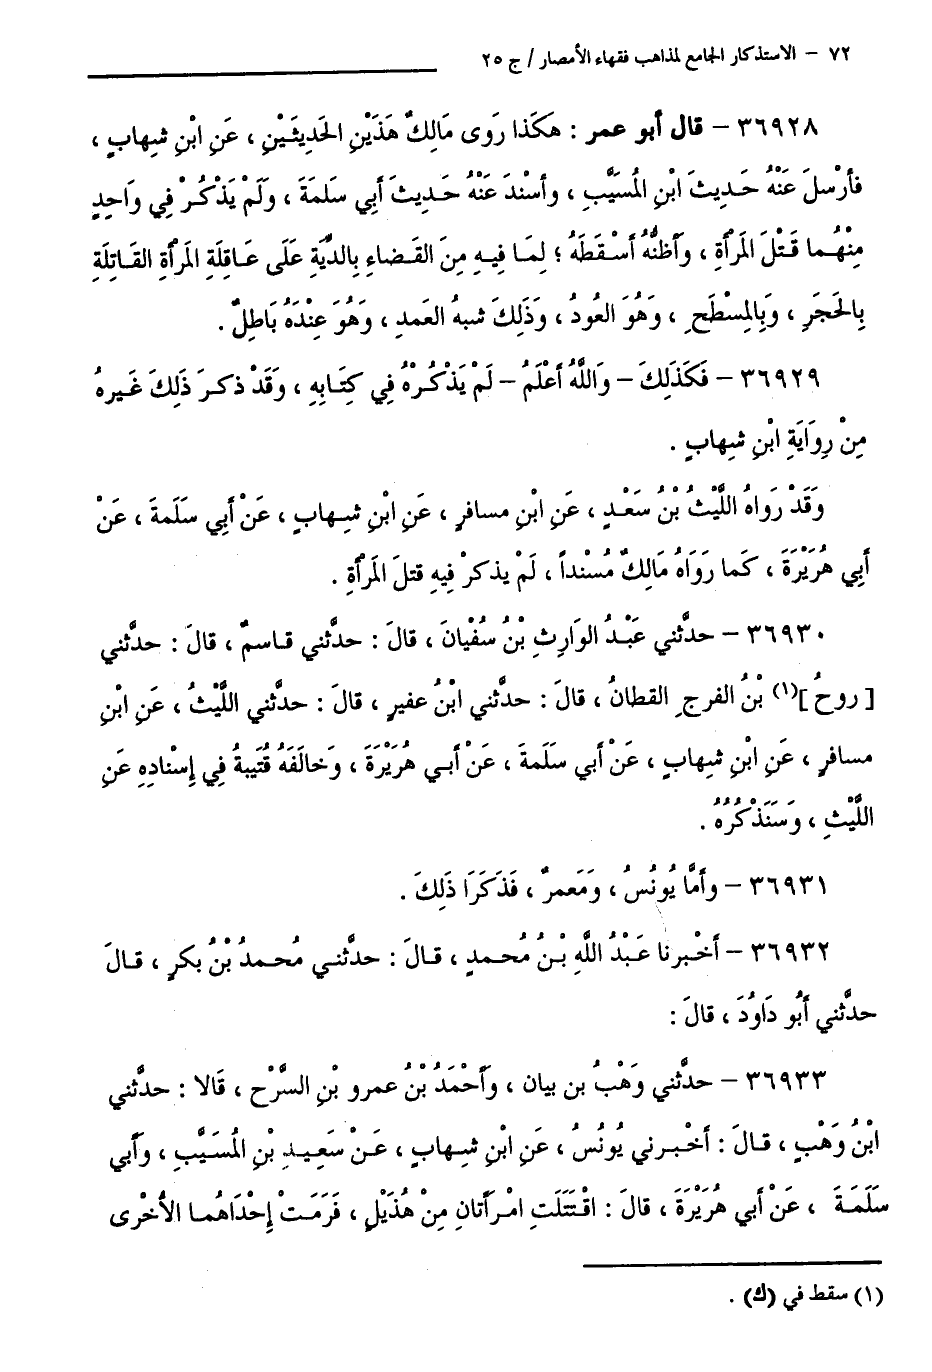 ٧٢ – الاستذكار الجامع لمذاهب فقهاء الأمصار / ج ٢٥
٣٦٩٢٨ – قال أبو عمر : هكَذا رَوى مَالِكٌ هَذَيْنِ الحَدِيثَيْنِ ، عَنِ ابْنِ شِهابٍ ،
فأرْسلَ عَنْهُ حَدِيثَ ابْنِ الْمُسَيَّبِ ، وأسْندَ عَنْهُ حَدِيثَ أبي سَلَمَةَ ، وَلَمْ يَذْكُرْ فِي وَاحِدٍ
مِنْهُما قَتْلَ المَرأَةِ ، وأَظُنُّهُ أسْقَطَهُ ؛ لِمَا فِيهِ مِنَ القَضاءِ بِالدِّيَةِ عَلَى عَاقِلَةِ المَرأةِ القَاتِلَةِ
بِالحَجَرِ ، وَبِالمِسْطَحِ ، وَهُوَ العُودُ ، وَذَلِكَ شبهُ العَمدِ ، وَهُوَ عِنْدَهُ بَاطِلٌ .
٣٦٩٢٩ – فَكَذَلِكَ – وَاللَّهُ أعْلَمُ – لَمْ يَذْكُرْهُ فِي كِتَابِهِ ، وَقَدْ ذكرَ ذَلِكَ غَيرهُ
مِنْ رِوَايَةِ ابْنِ شِهابٍ .
وَقَدْ رَواهُ اللَّيْثُ بْنُ سَعْدٍ ، عَنِ ابْنِ مسافرٍ ، عَنِ ابْنِ شِهابٍ ، عَنْ أبِي سَلَمَةَ ، عَنْ
أبِي هُرَيْرَةَ ، كَما رَوَاهُ مَالِكٌ مُسْنداً ، لَمْ يذكرْ فِيهِ قتلَ المَرأةِ .
٣٦٩٣٠ – حدثَّني عَبْدُ الوَارِثِ بْنُ سُفْيانَ ، قالَ : حدَّثني قاسمٌ ، قالَ : حدَّثني
[ روحُ ](١) بْنُ الفرجِ القطانُ ، قالَ : حدَّثني ابْنُ عفيرٍ ، قالَ : حدَّثني اللَّيْثُ ، عَنِ ابْنِ
مسافرٍ ، عَنِ ابْنِ شِهابٍ ، عَنْ أبي سَلَمةَ ، عَنْ أبي هُرَيْرَةَ ، وَخالَفَهُ قُتَيبةُ فِي إِسْنادِهِ عَنِ
اللَّيْثِ ، وسَنَذْكُرُهُ .
٣٦٩٣١ – وأمَّا يُونُسُ ، وَمَعمرٌ ، فَذَكَرَا ذَلِكَ .
٣٦٩٣٢ – أخْبرنا عَبْدُ اللَّهِ بْنُ مُحمدٍ ، قالَ : حدَّثني مُحمدُ بْنُ بكرٍ ، قالَ
حدَّثني أَبُو دَاوُدَ ، قالَ :
٣٦٩٣٣ – حدَّثني وَهْبُ بن بيان ، وَأحْمَدُ بْنُ عمرو بْنِ السَّرْحِ ، قَالا : حدَّثني
ابْنُ وَهْبٍ ، قالَ : أخْبرني يُونُسُ ، عَنِ ابْنِ شِهابٍ ، عَنْ سَعِيدِ بْنِ الْمُسَيَّبِ ، وأبي
سَلَمَةَ ، عَنْ أبي هُرَيْرَةَ ، قالَ : اقْتَتَلَتِ امْرأتانِ مِنْ هُذَيْلٍ ، فَرَمَتْ إِحْدَاهُما الأُخْرى
(١) سقط في (ك) .